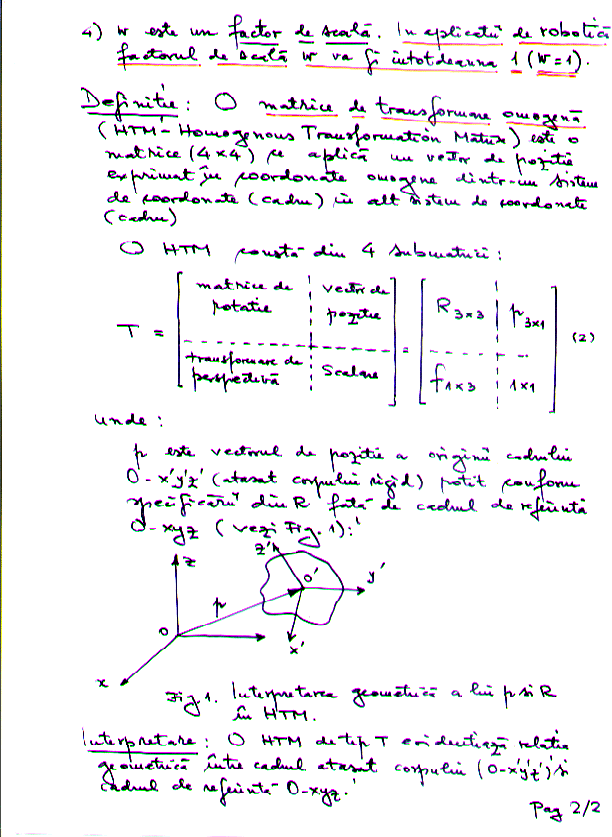 4) w este un factor de scală. In aplicatii de robotica
factorul de scală w va fi intotdeauna 1 (w=1).
Definitie : O matrice de transformare omogenă
(HTM - Homogenous Transformation Matrix) este o
matrice (4×4) ce aplică un vector de pozitie
exprimat în coordonate omogene dintr-un sistem
de coordonate (cadru) in alt sistem de coordonate
(cadru)
O HTM constă din 4 submatrici :
T = [ matrice de rotatie | vector de pozitie ; transformare de perspectivă | Scalare ] = [ R3×3 | p3×1 ; f1×3 | 1×1 ] (2)
unde :
p este vectorul de pozitie a originii cadrului
O-x'y'z' (atasat corpului rigid) rotit conform
specificării din R fată de cadrul de referintă
O-xyz (vezi Fig. 1).
z'
z
O'
y'
p
O
x'
x
Fig 1. Interpretarea geometrică a lui p si R
în HTM.
Interpretare : O HTM de tip T evidentiază relatia
geometrică între cadrul atasat corpului (O-x'y'z') si
cadrul de referintă O-xyz.
Pag 2/2